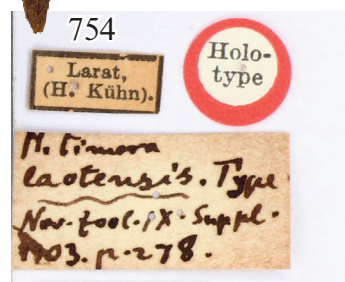 754
Larat,
(H. Kühn).
Holo-
type
M. timora
laotensis. Type
Nov. Zool. IX. Suppl.
1903. p. 278.